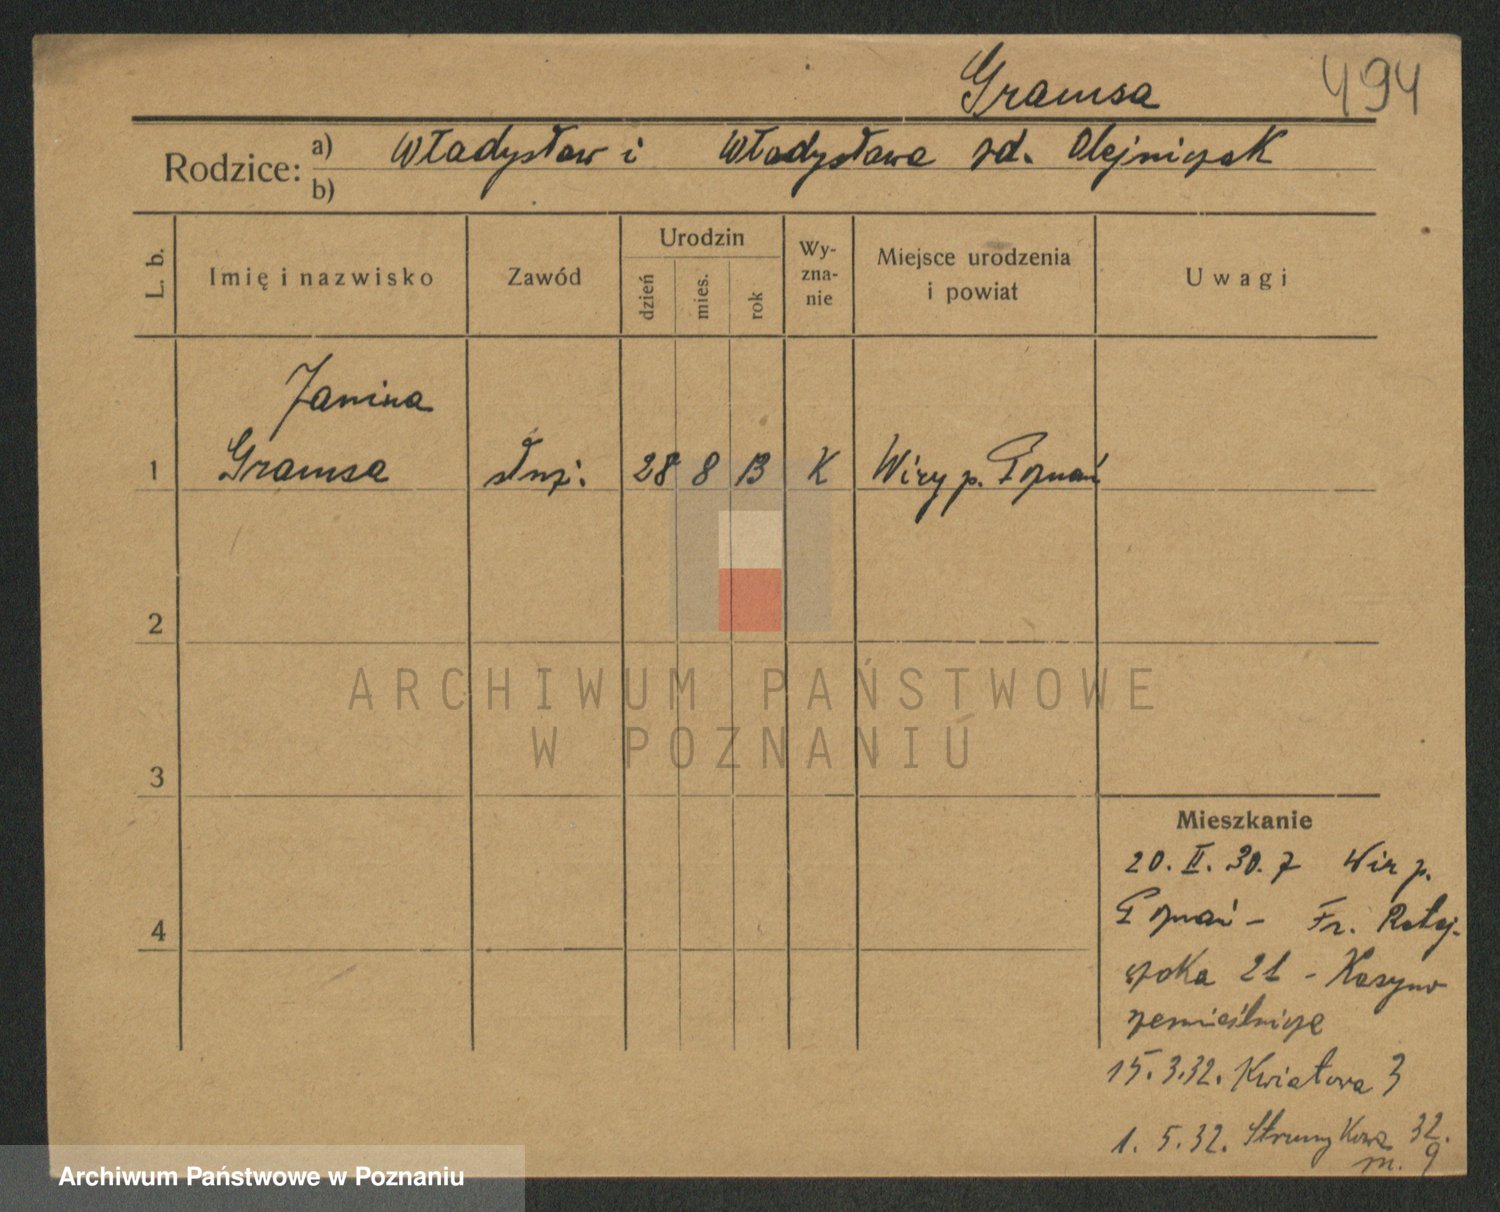 Gramsa 494
Rodzice: a) Władysław i Władysława zd. Olejniczak
b)
L. b. Imię i nazwisko Zawód Urodzin dzień mies. rok Wy-zna-nie Miejsce urodzenia i powiat Uwagi
Janina
1 Gramsa służ. 28 8 13 K Wiry p. Poznań
2
ARCHIWUM PAŃSTWOWE
W POZNANIU
3
Mieszkanie
20. II. 30. z Wir p.
4 Poznań - Fr. Rataj-
czaka 21 - Kasyno
rzemieślnicze
15. 3. 32. Kwiatowa 3
1. 5. 32. Strumykowa 32.
m. 9
Archiwum Państwowe w Poznaniu